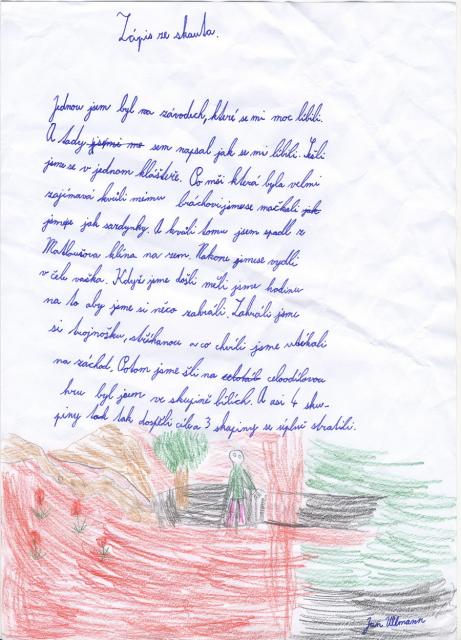 Zápis ze skauta.
Jednou jsem byl na závodech, které se mi moc líbili.
A tady jsmi mo sem napsal jak se mi líbili. Sešli
jsme se v jednom klášteře. Po mši která byla velmi
zajínavá kvůli mému bráchovi jsme se mačkali jak
jsme jak sardynky. A kvůli tomu jsem spadl z
Matloušova klína na zem. Nakone jsme se vydli
v čele vaška. Když jsme došli měli jsme hodinu
na to aby jsme si něco zahráli. Zahráli jsme
si trojnošku, obíhanou a co chvíli jsme uběhali
na záchod. Potom jsme šli na celooďilovou
hru byl jsem ve skupině bílích. A asi 4 sku-
piny tak dospěli cíle a 3 skupiny se úplně stratili.
Jan Ullmann